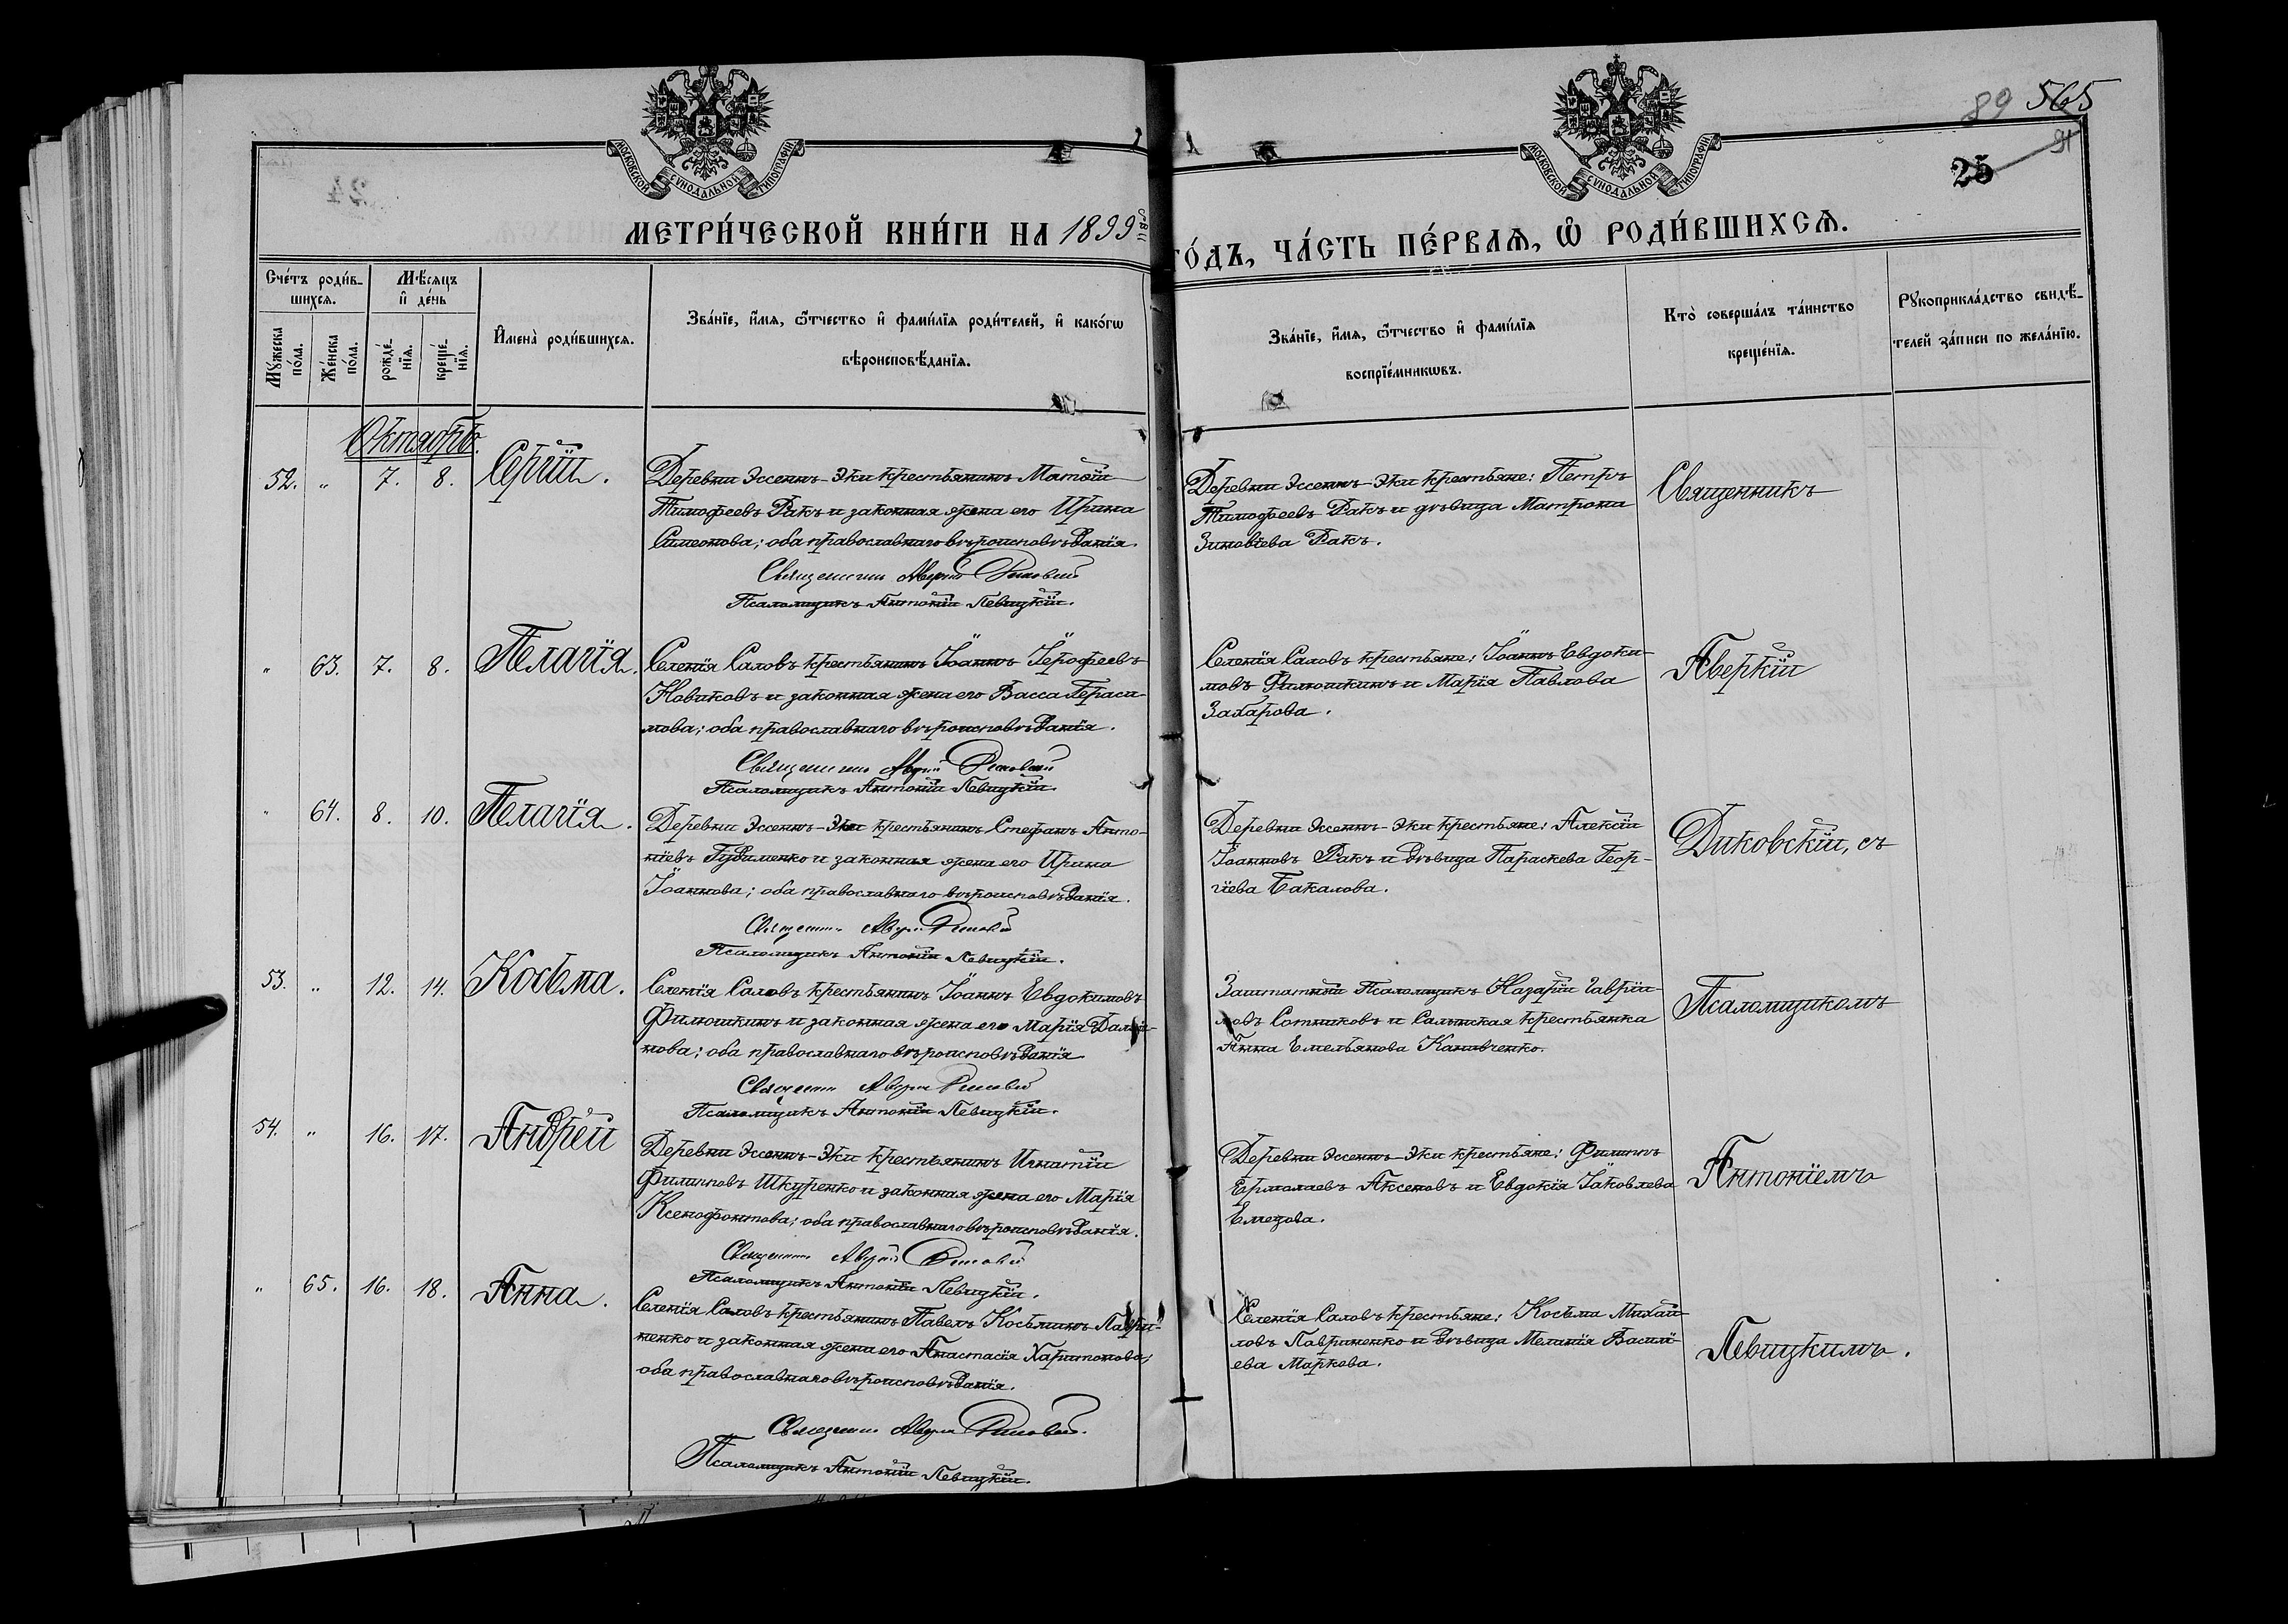 89 565
91
25
МОСКОВСКОЙ СѴНОДАЛЬНОЙ ТИПОГРАФІИ
МОСКОВСКОЙ СѴНОДАЛЬНОЙ ТИПОГРАФІИ
МЕТРИ́ЧЕСКОЙ КНИ́ГИ НА 1899
ГО́ДЪ, ЧА́СТЬ ПЕ́РВАѦ, Ѡ РОДИ́ВШИХСѦ.
Сче́тъ роди́в-
шихсѧ.
Мꙋ́жеска по́ла.
Же́нска по́ла.
Мѣ́сяцъ
и҆ де́нь
рожде́-
нїѧ.
креще́-
нїѧ.
И҆мена̀ роди́вшихсѧ.
Зва́нїе, и҆́мѧ, ѻ҆́тчество и҆ фамѝлїѧ роди́телей, и҆ како́гѡ
вѣроисповѣ́данїѧ.
Зва́нїе, и҆́мѧ, ѻ҆́тчество и҆ фамѝлїѧ
воспрїе́мникѡвъ.
Кто̀ соверша́лъ та́инство
креще́нїѧ.
Рꙋкоприкла́дство свидѣ́-
телей за́писи по жела́нїю.
Октябрь.
52. " 7. 8. Сергій.
Деревни Эссенъ-Эки крестьянинъ Матвѣй
Тимофеевъ Ракъ и законная жена его Ирина
Симеонова; оба православнаго вѣроисповѣданія.
Священникъ Аверкій Диковскій
Псаломщикъ Антоній Левицкій.
Деревни Эссенъ-Эки крестьяне: Петръ
Тимофеевъ Ракъ и дѣвица Матрона
Зиновіева Ракъ.
Священникъ
" 63. 7. 8. Пелагія.
Селенія Саловъ крестьянинъ Іоаннъ Іерофеевъ
Новиковъ и законная жена его Васса Гераси-
мова; оба православнаго вѣроисповѣданія.
Священникъ Аверкій Диковскій
Псаломщикъ Антоній Левицкій.
Селенія Саловъ крестьяне: Іоаннъ Евдоки-
мовъ Филюшкинъ и Марія Павлова
Захарова.
Аверкій
" 64. 8. 10. Пелагія.
Деревни Эссенъ-Эки крестьянинъ Стефанъ Анто-
ніевъ Гудименко и законная жена его Ирина
Іоаннова; оба православнаго вѣроисповѣданія.
Священникъ Аверкій Диковскій
Псаломщикъ Антоній Левицкій.
Деревни Эссенъ-Эки крестьяне: Алексій
Іоанновъ Ракъ и дѣвица Параскева Геор-
гіева Бакалова.
Диковскій, съ
53. " 12. 14. Косьма.
Селенія Саловъ крестьянинъ Іоаннъ Евдокимовъ
Филюшкинъ и законная жена его Марія
нова; оба православнаго вѣроисповѣданія
Священникъ Аверкій Диковскій
Псаломщикъ Антоній Левицкій.
Заштатный Псаломщикъ Назарій Гавріи-
ловъ Сотниковъ и Салынская крестьянка
Анна Емельянова Канивченко.
Псаломщикомъ
54. " 16. 17. Андрей
Деревни Эссенъ-Эки крестьянинъ Игнатій
Филиповъ Шкуренко и законная жена его Марія
Ксенофонтова; оба православнаго вѣроисповѣданія.
Священникъ Аверкій Диковскій
Псаломщикъ Антоній Левицкій.
Деревни Эссенъ-Эки крестьяне: Филиппъ
Ермолаевъ Аксеновъ и Евдокія Іаковлева
Антоніемъ
" 65. 16. 18. Анна.
Селенія Саловъ крестьянинъ Павелъ Косьминъ Лаври-
ненко и законная жена его Анастасія Харитонова;
оба православнаго вѣроисповѣданія.
Священникъ Аверкій Диковскій.
Псаломщикъ Антоній Левицкій.
Селенія Саловъ крестьяне: Косьма Михаи-
ловъ Лавриненко и дѣвица Меланія Васили-
ева Маркова.
Левицкимъ.